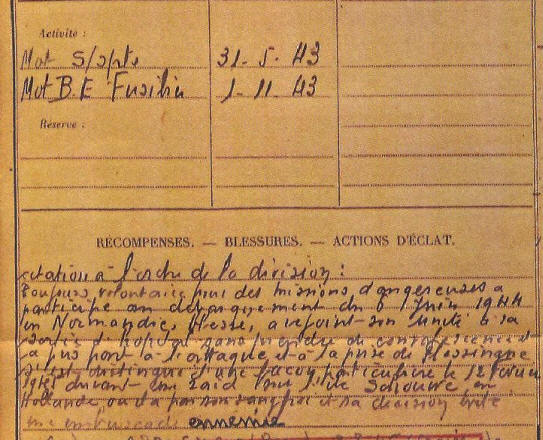 Activité :
Mot S/spte 31. 5. 43
Mot B.E Fusilier 1. 11. 43
Réserve :
RÉCOMPENSES. — BLESSURES. — ACTIONS D'ÉCLAT.
citation à l'ordre de la division :
Toujours volontaire pour des missions dangereuses a
participé au débarquement du 6 Juin 1944
en Normandie, blessé, a rejoint son unité à sa
sortie d'hopital sans prendre de convalescence
a pris part à l'attaque et à la prise de Flessingue
S'est distingué d'une façon particulière le 12
1945 durant un raid sur l'ile Schouwen en
Hollande ou sa décision
une embuscade ennemie